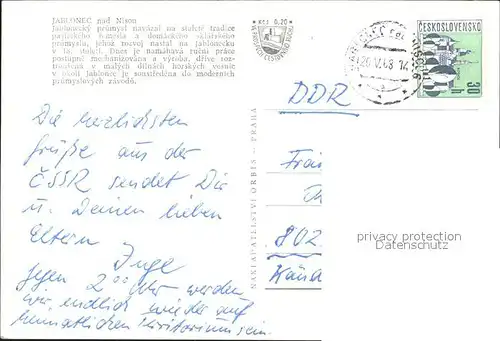 JABLONEC nad Nisou
Jablonecký průmysl navázal na staleté tradice
pasířského řemesla a domáckého sklářského
průmyslu, jehož rozvoj nastal na Jablonecku
v 18. století. Dnes je namáhavá ruční práce
postupně mechanizována a výroba, dříve roz-
troušená v malých dílnách horských vesnic
v okolí Jablonce je soustředěna do moderních
průmyslových závodů.
Kčs 0,20
ČESKOSLOVENSKO
30
h
26.VI.68-14
DDR
Die herzlichsten
Grüße aus der
ČSSR sendet Dir
u. Deinen lieben
Eltern
Inge
Gegen 2⁰⁰ Uhr werden
wir endlich wieder auf
heimatlichen Territorium sein.
NAKLADATELSTVÍ ORBIS — PRAHA
802
privacy protection
Datenschutz